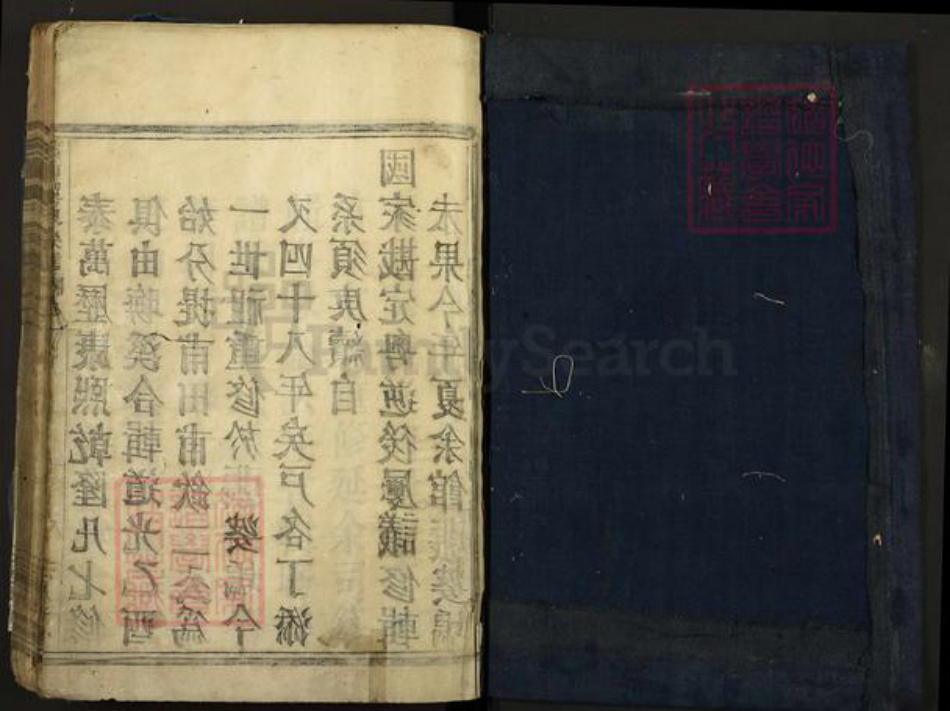 泰萬歷康熙乾隆凡七修
俱由聯溪合輯道光乙酉
始分提甫田甫欽二公為
一世祖重修於 婺 今
又四十八年矣戶各丁添
系須庚續自
國家戡定粵逆後屢議修輯
未果今年夏余館
FamilySearch